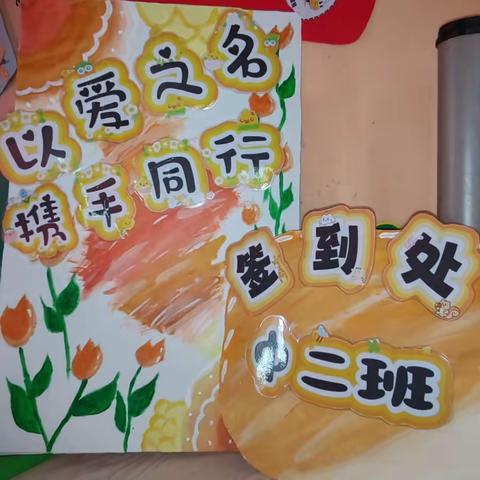 以爱之名
携手同行
签到处
中二班